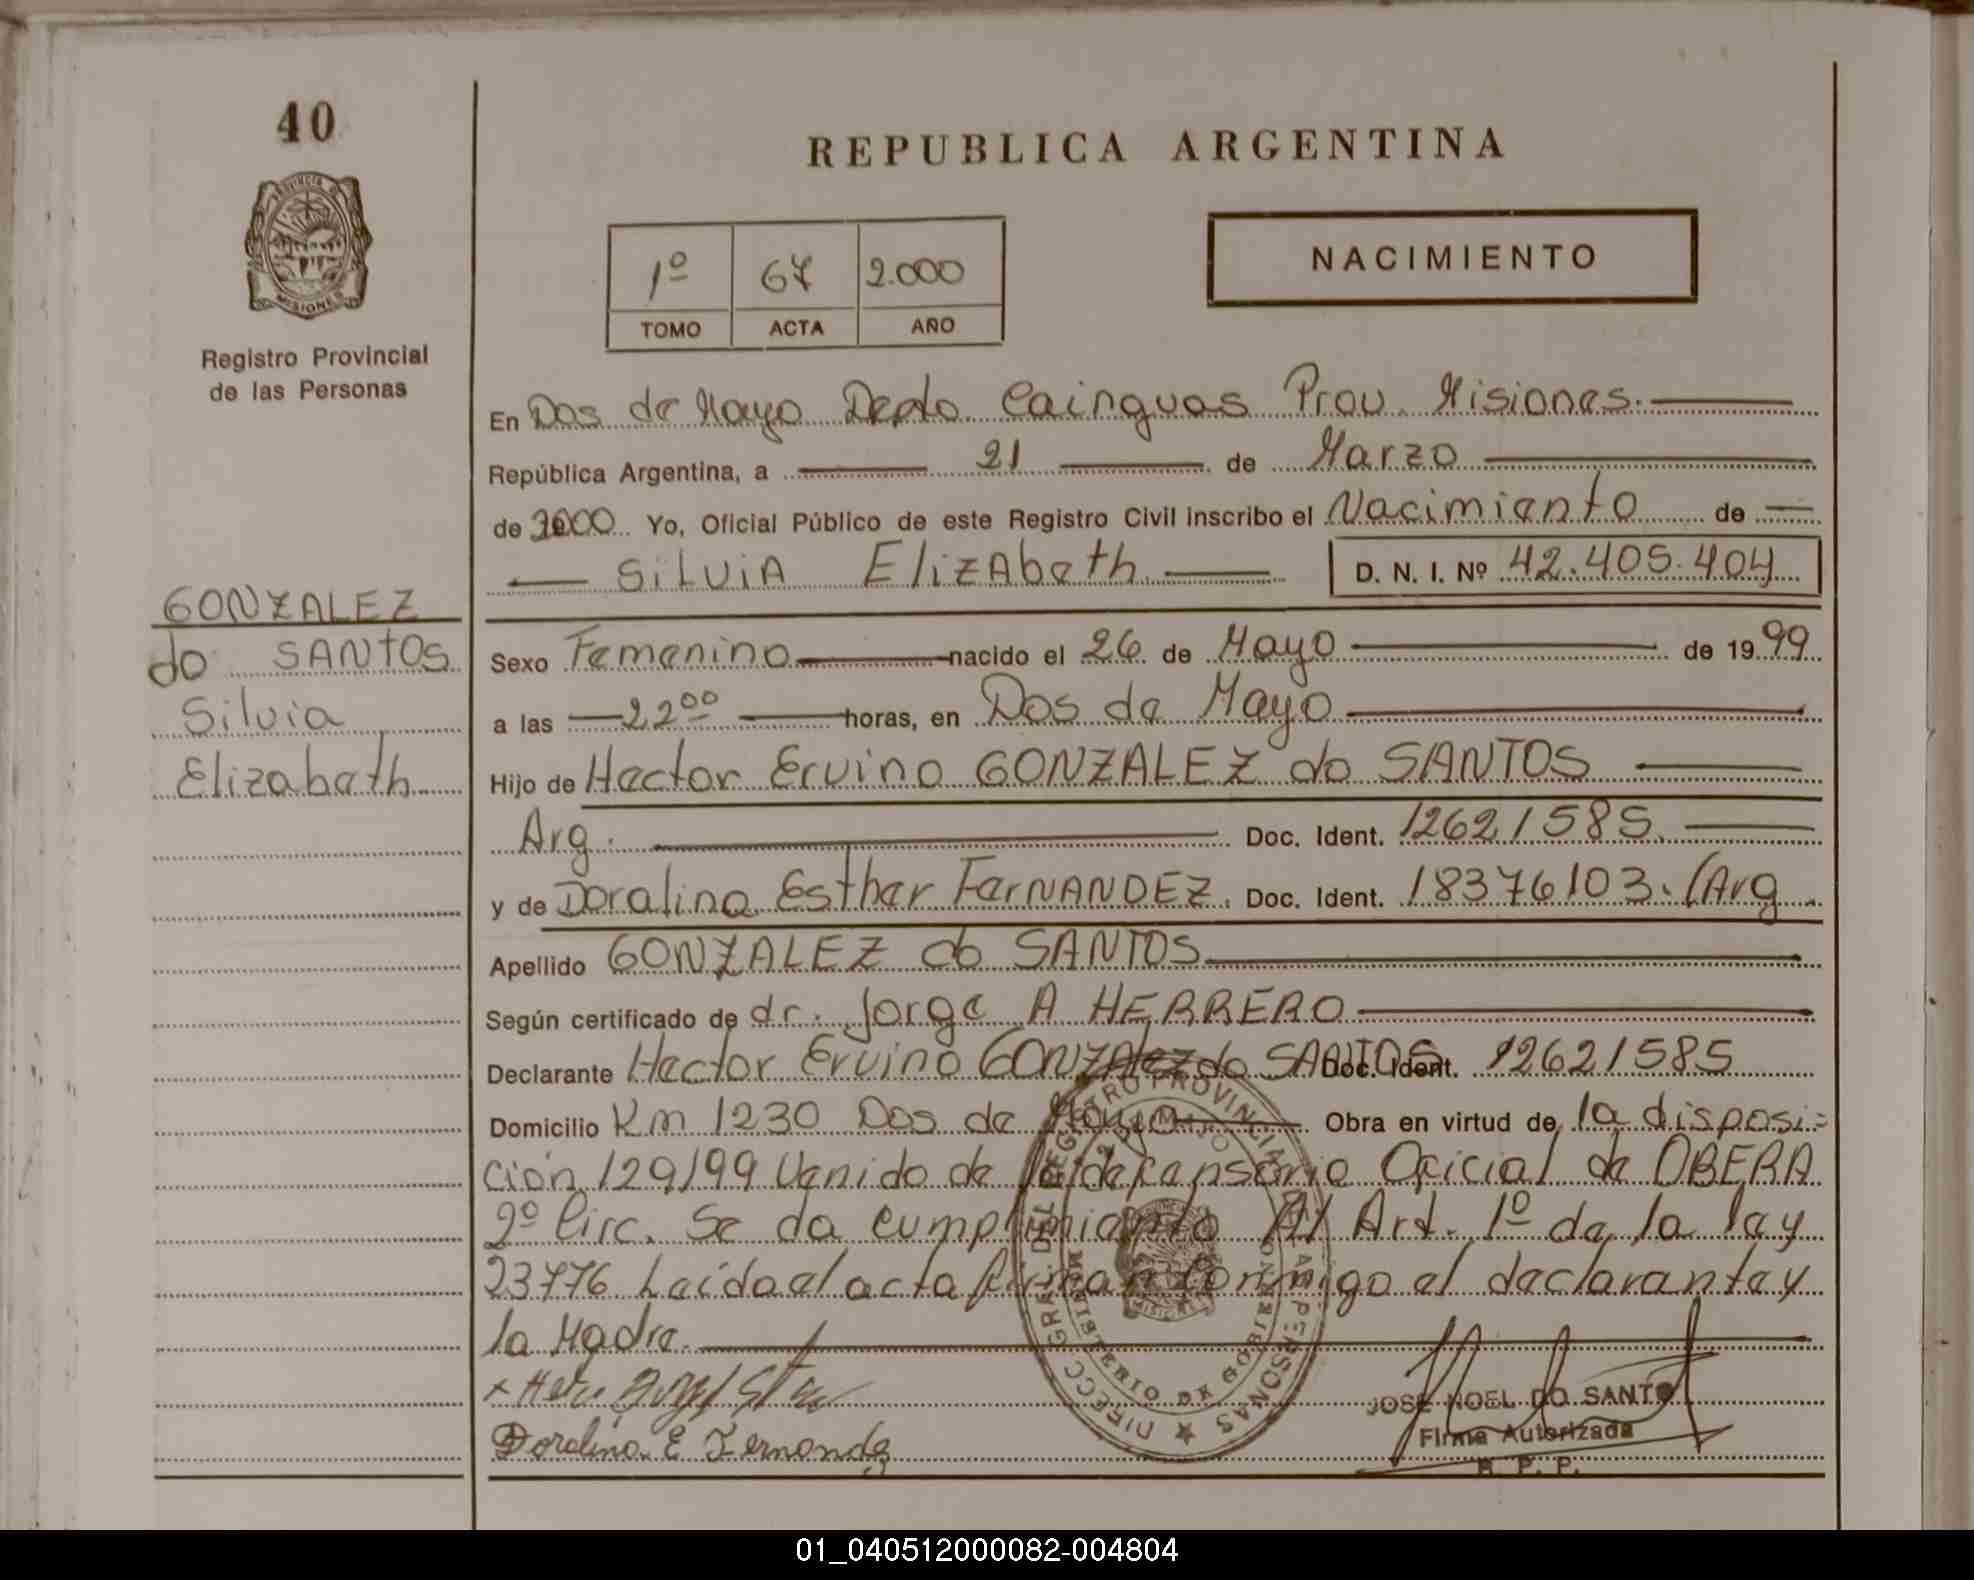 40
REPUBLICA ARGENTINA
NACIMIENTO
1º 67 2.000
TOMO ACTA AÑO
MISIONES
Registro Provincial
de las Personas
En Dos de Mayo Depto. Cainguas Prov. Misiones.
República Argentina, a 21 de Marzo
de 2000 Yo, Oficial Público de este Registro Civil inscribo el Nacimiento de
SILVIA Elizabeth D. N. I. Nº 42.405.404
GONZALEZ
do SANTOS
Silvia
Elizabeth
Sexo Femenino nacido el 26 de Mayo de 1999
a las 22 00 horas, en Dos de Mayo
Hijo de Hector Ervino GONZALEZ do SANTOS
Arg. Doc. Ident. 12621585
y de Doralina Esther FerNANDEZ. Doc. Ident. 18376103. (Arg
Apellido GONZALEZ do SANTOS
Según certificado de dr. Jorge A HERRERO
Declarante Hector Ervino GONZALEZ do SANTOS Doc. Ident. 12621585
Domicilio Km 1230 Dos de Mayo Obra en virtud de la disposi=
ción 129/99 Venido de la defensoria Oficial de OBERA
2º Circ. Se da cumplimiento Al Art. 1º de la ley
23776 Leída el acta firman Conmigo el declarante y
la Madre.
Doralina E Fernande
JOSE NOEL DO SANTO
Firma Autorizada
R. P. P.
01_040512000082-004804